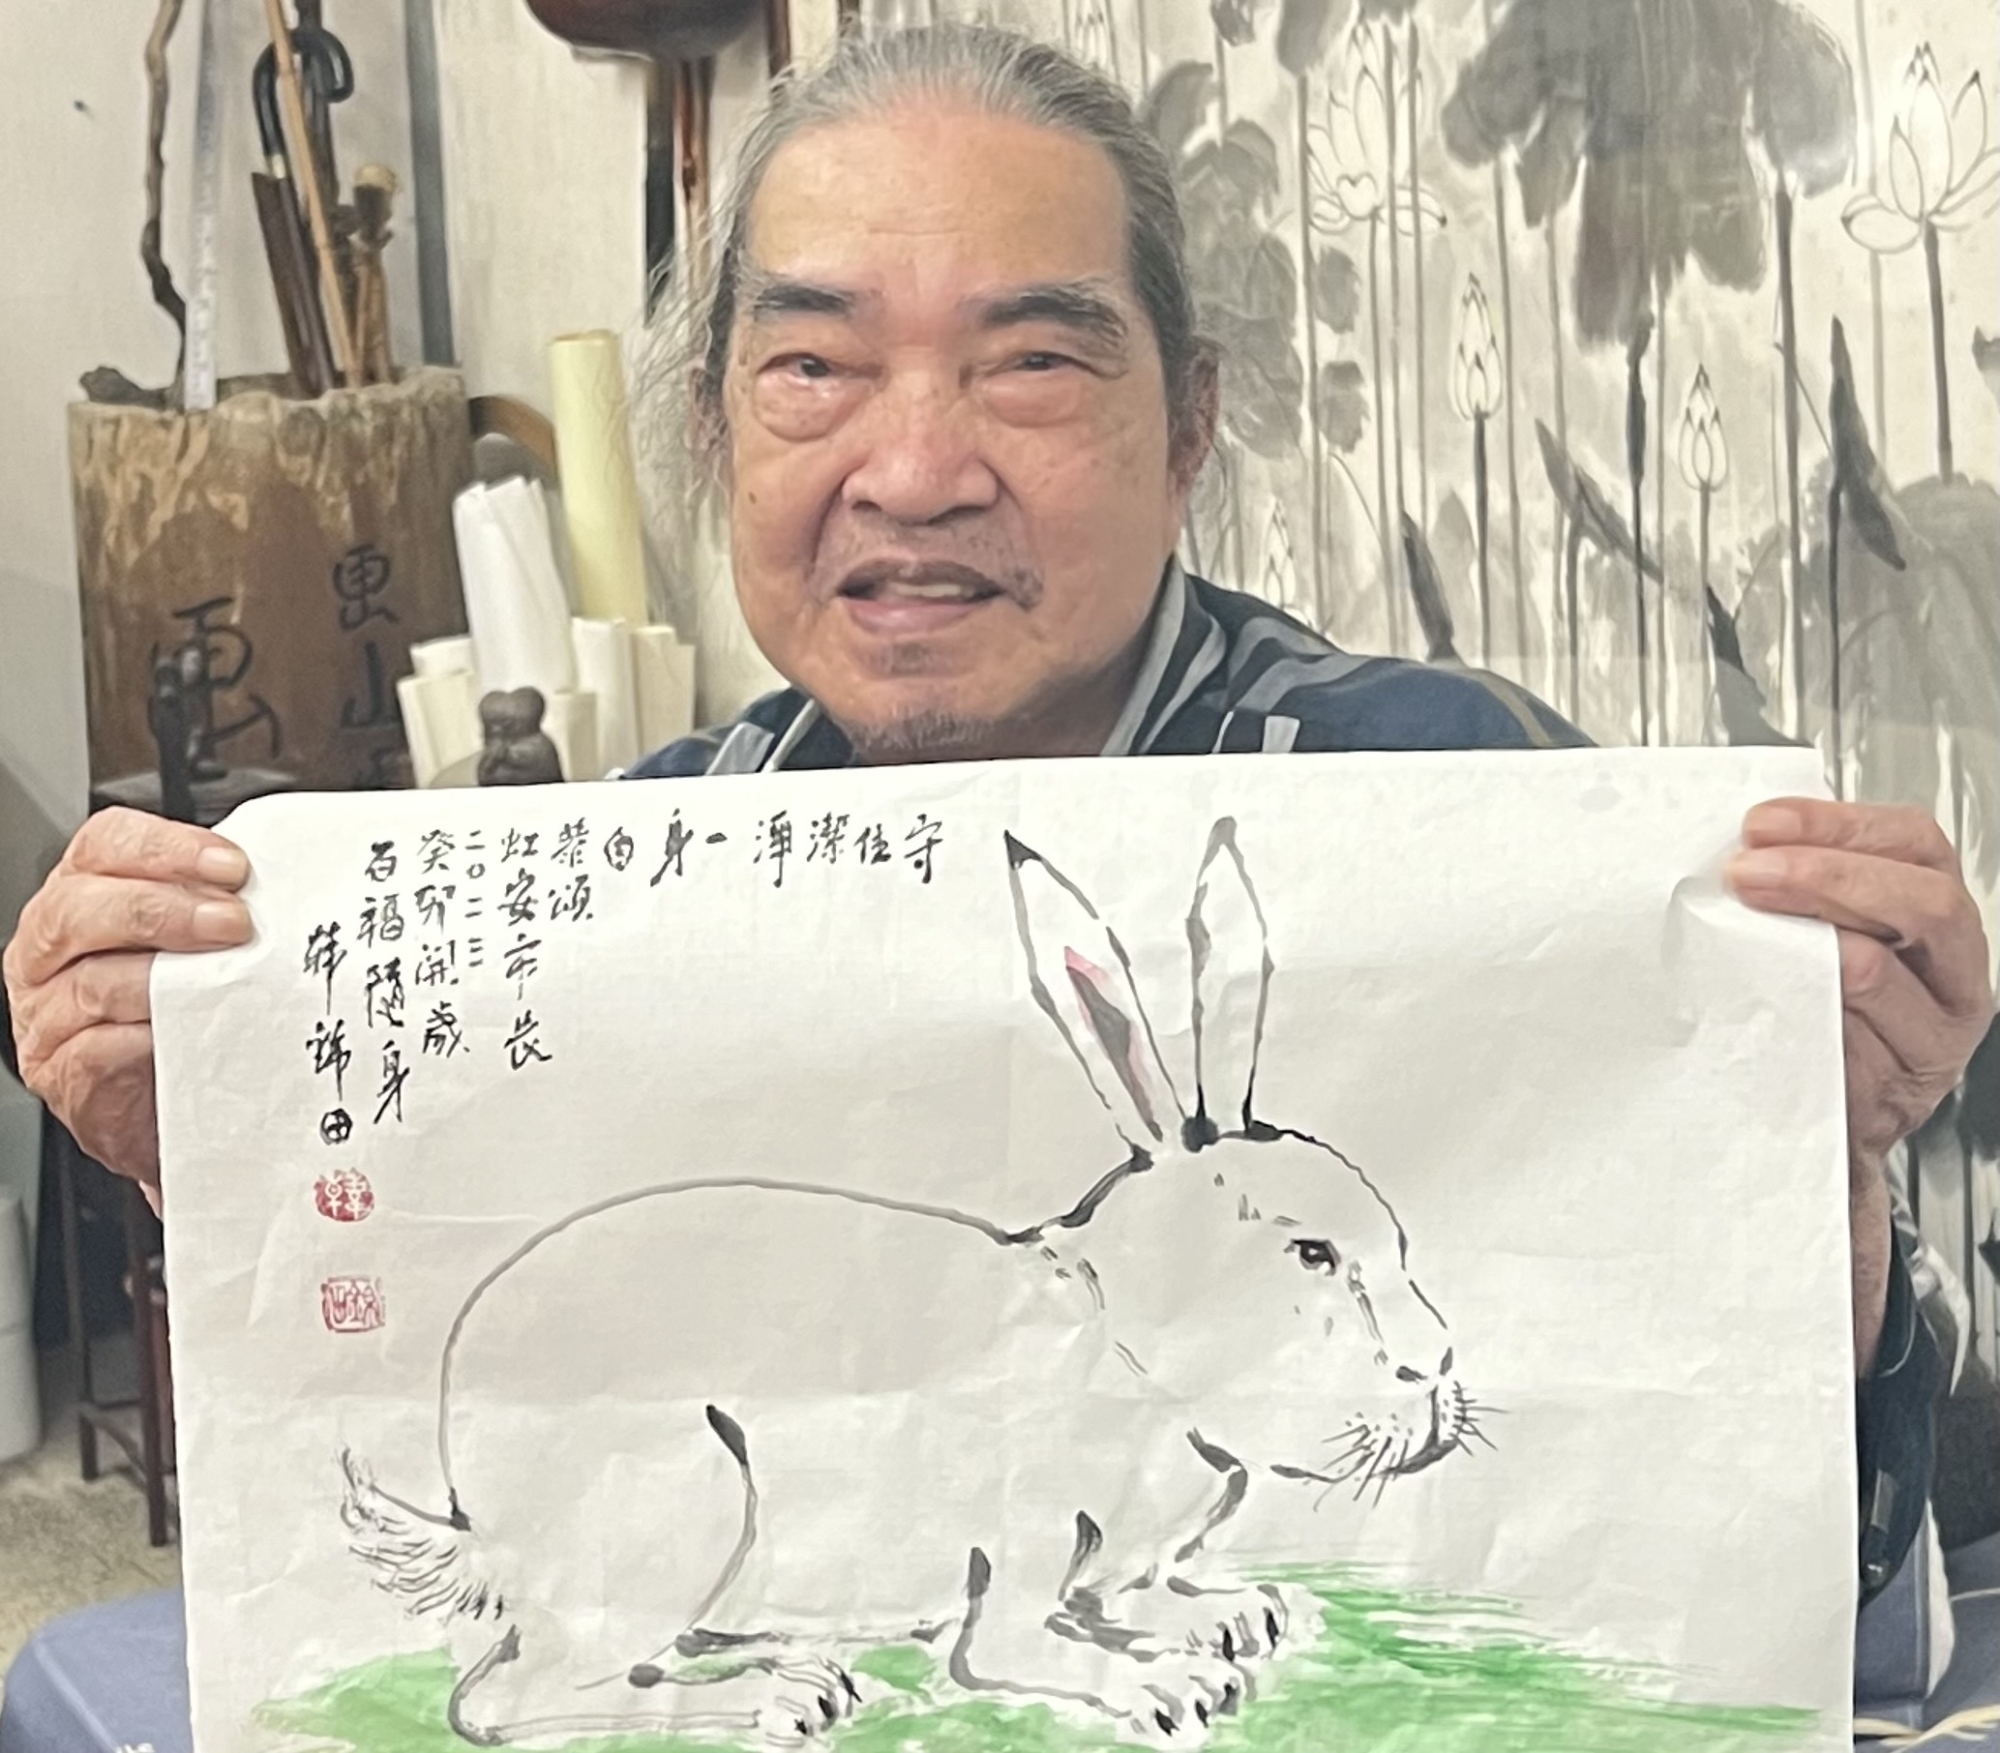 守住潔淨一身白
恭頌
虹安市長
二〇二三
癸卯開歲
百福隨身
韓錦田
韓
錦田